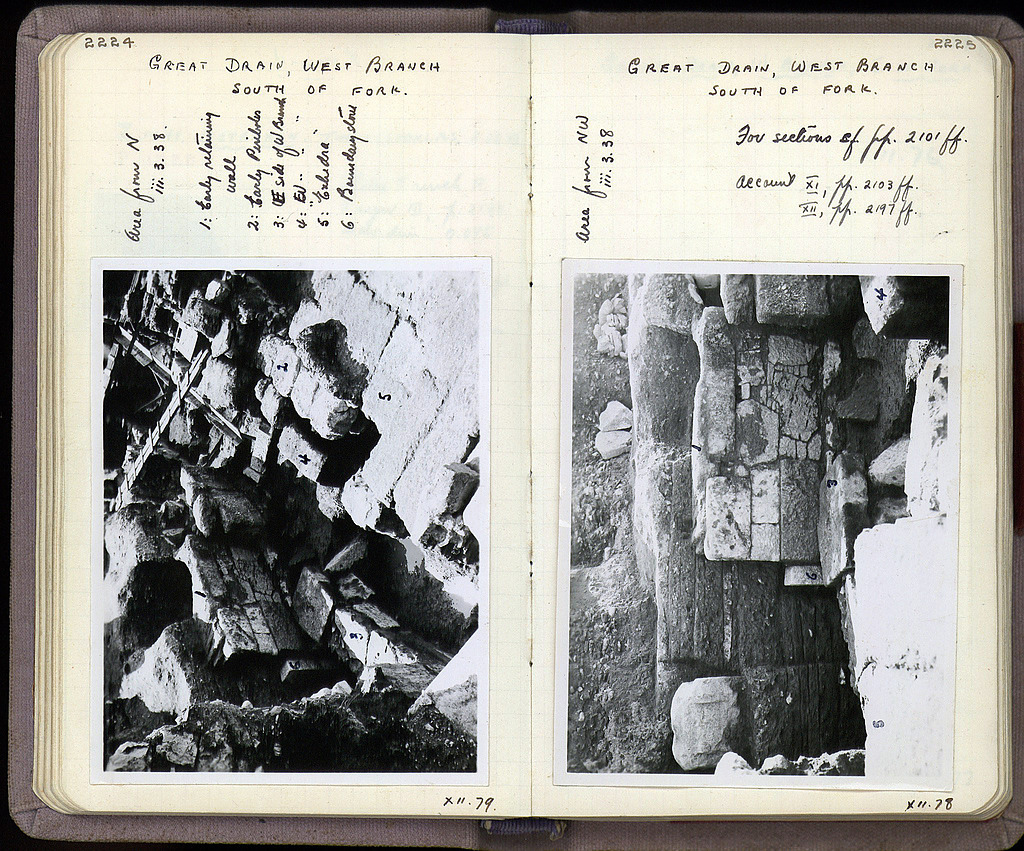 2224
GREAT DRAIN, WEST BRANCH
SOUTH OF FORK.
Area from N
iii.3.38.
1: Early retaining
wall
2: Early Peribolos
3: E side of W Branch
4: EV " "
5: Exhedra "
6: Boundary stone
2
5
4
3
6
XII.79.
2225
GREAT DRAIN, WEST BRANCH
SOUTH OF FORK.
Area from NW
iii.3.38
For sections cf pp. 2101 ff.
Account XI, pp. 2103 ff.
XII, pp. 2197 ff.
4
1
3
6
5
XII.78